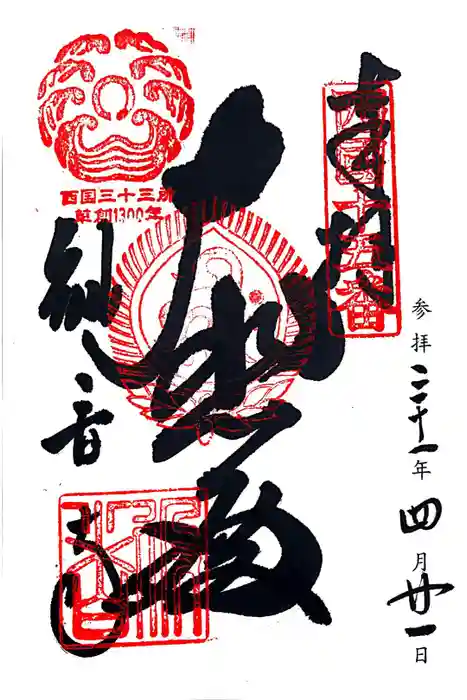 奉拝
西国十五番
大悲殿
西国三十三所
草創1300年
観音寺
参拝三十一年四月廿一日